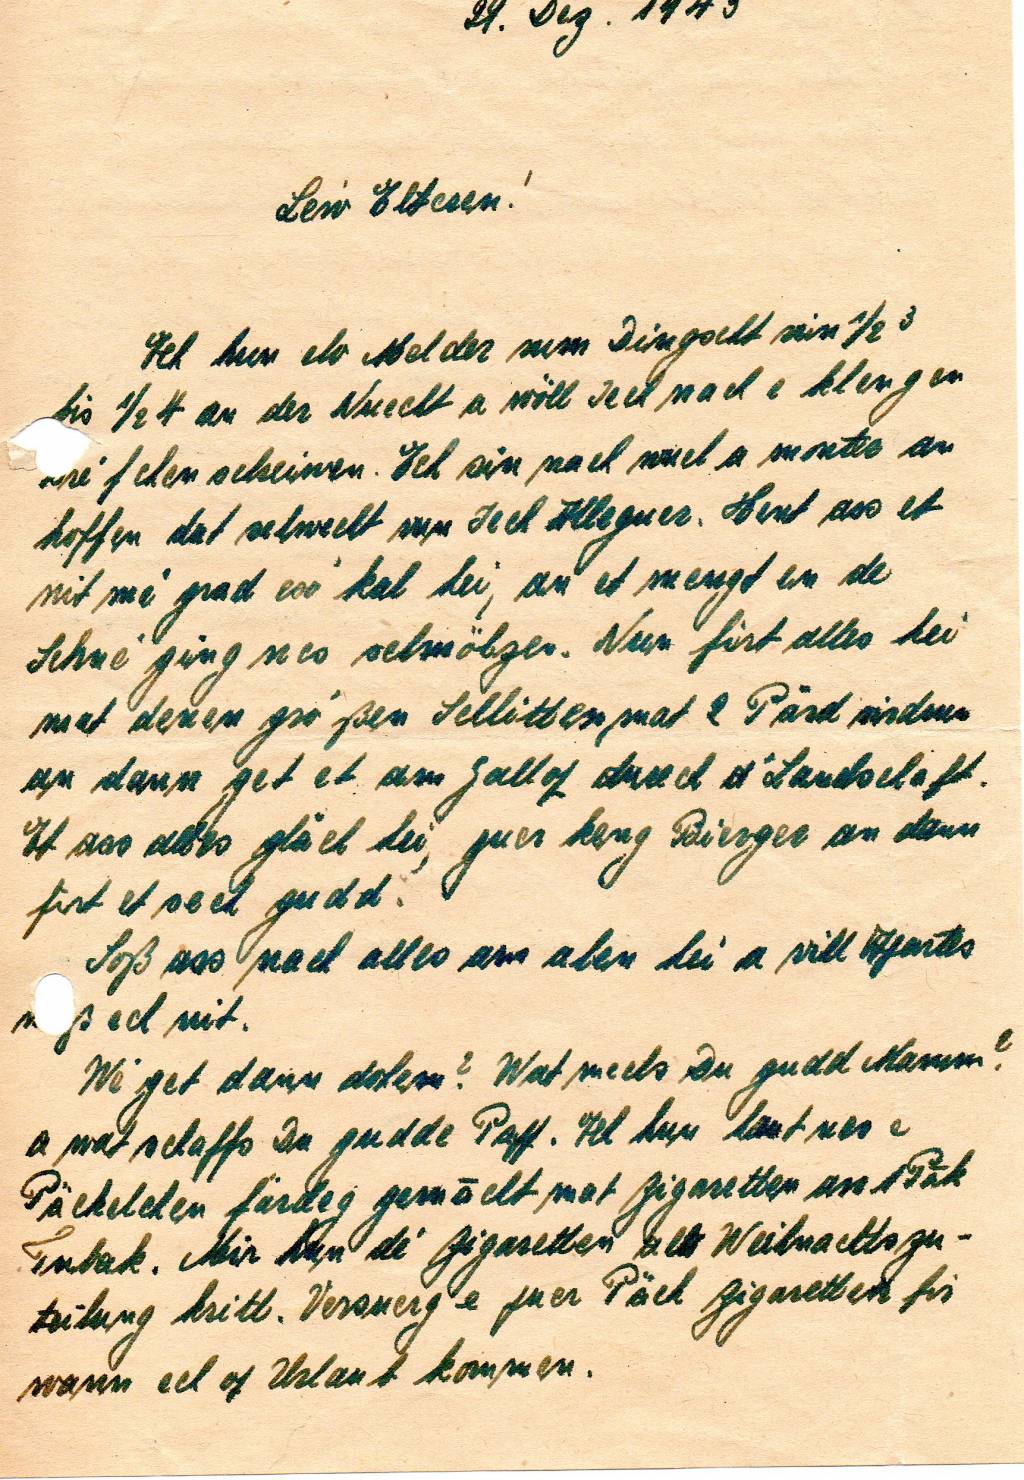 29. Dez. 1943
Léiw Elteren!
Ech hun elo Melder vum Dingscht vin 1/2 3
bis 1/2 4 an der Nuecht a wöll Iech nach e klengen
fchen schreiwen. Ech sin nach wuel a monter an
hoffen dat selwecht vun Iech Alleguer. Haut ass et
nit mé grad esó kal hei, an et mengt en de
Schné ging nes schmölzen. Nun fiert alles hei
mat denen gró ßen Schlitten, mat 2 Pärd virdrun
an dann get et am Gallop duerch d'Landschaft.
Et ass alles gläch hei, guer keng Bierger an dann
fiert et sech gudd.
Soß ass nach alles am alen hei a vill
ß ech nit.
Wé get dann doheem? Wat meels Du gudd Mamm?
a wat schaffs Du gudde Papp. Ech hun haut nes e
Päckelchen färdeg gemächt mat Zigaretten an 1 Päk
Tubak. Mir hun dé Zigaretten als Weihnachtszu-
teilung kritt. Versuerg e puer Päck Zigaretten fir
wann ech op Urlaub kommen.